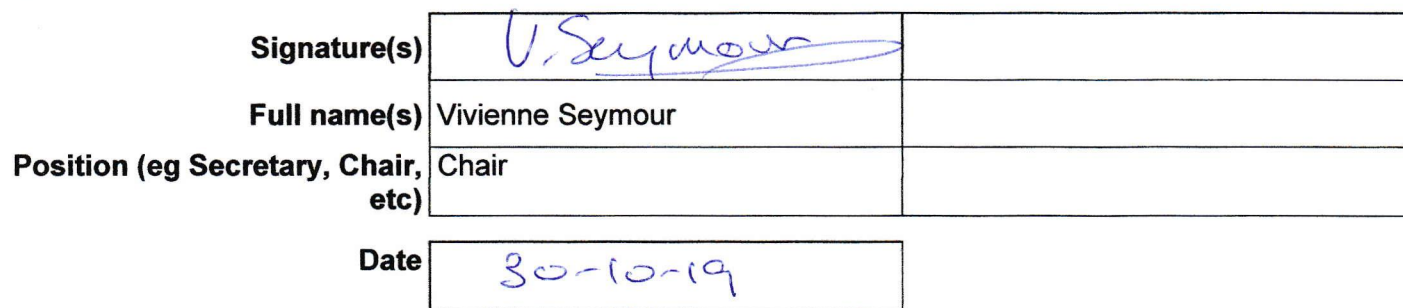 Signature(s) V. Seymour
Full name(s) Vivienne Seymour
Position (eg Secretary, Chair, Chair
etc)
Date 30-10-19